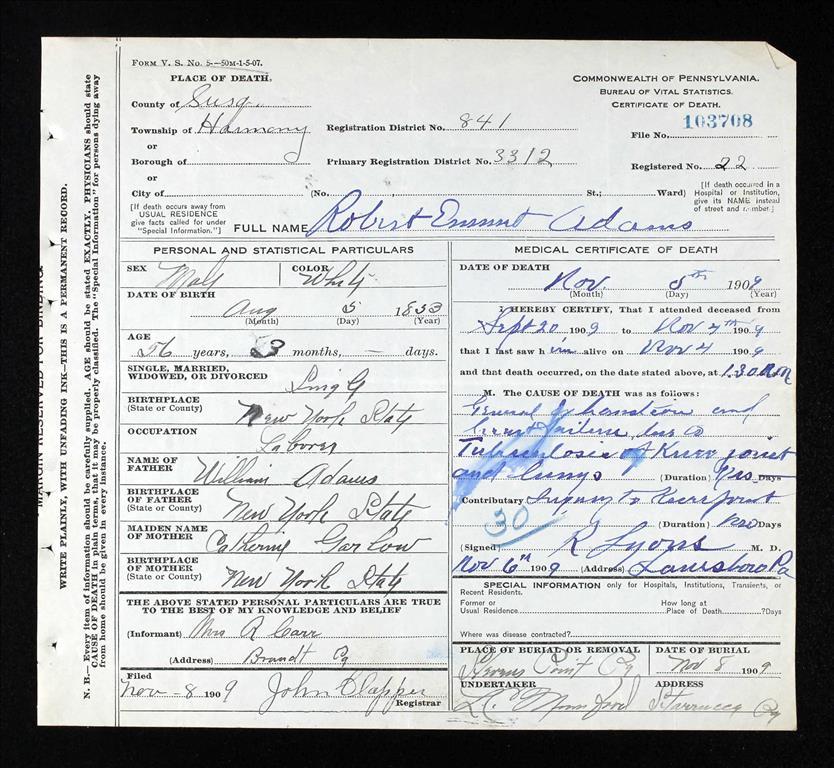 FORM V. S. No. 5—50M-1-5-07.
PLACE OF DEATH.
County of Susq.
Township of Harmony
or
Borough of
or
City of
Registration District No. 841
Primary Registration District No. 3312
(No. St.; Ward)
COMMONWEALTH OF PENNSYLVANIA.
BUREAU OF VITAL STATISTICS.
CERTIFICATE OF DEATH.
File No. 103708
Registered No. 22
[If death occurred in a Hospital or Institution, give its NAME instead of street and number.]
[If death occurs away from USUAL RESIDENCE give facts called for under "Special Information."]
FULL NAME Robert Emmut Adams
PERSONAL AND STATISTICAL PARTICULARS
SEX Male
COLOR White
DATE OF BIRTH
Aug 5 1853
(Month) (Day) (Year)
AGE
56 years, 3 months, — days.
SINGLE, MARRIED, WIDOWED, OR DIVORCED Singl
BIRTHPLACE (State or County) New York State
OCCUPATION Laborer
NAME OF FATHER William Adams
BIRTHPLACE OF FATHER (State or County) New York State
MAIDEN NAME OF MOTHER Catherine Garlow
BIRTHPLACE OF MOTHER (State or County) New York State
THE ABOVE STATED PERSONAL PARTICULARS ARE TRUE
TO THE BEST OF MY KNOWLEDGE AND BELIEF
(Informant) Mrs R Carr
(Address) Brandt Pa
Filed
Nov-8 1909 John Clapper
Registrar
MEDICAL CERTIFICATE OF DEATH
DATE OF DEATH
Nov. 5th 1909
(Month) (Day) (Year)
I HEREBY CERTIFY, That I attended deceased from
Sept 20 1909 to Nov 4th 1909
that I last saw him alive on Nov 4 1909
and that death occurred, on the date stated above, at 1.30 A.M
M. The CAUSE OF DEATH was as follows:
General Exhaustion and
heart failure due to
Tuberculosis of Knee joint
and lungs (Duration) Yrs Days
Contributory Injury to Knee joint
30
(Duration) Days
(Signed) R Lyons M. D.
Nov 6th 1909 (Address) Lanesboro Pa
SPECIAL INFORMATION only for Hospitals, Institutions, Transients, or Recent Residents.
Former or Usual Residence
How long at Place of Death ?Days
Where was disease contracted?
PLACE OF BURIAL OR REMOVAL
Stevens Point Pa
DATE OF BURIAL
Nov 8 1909
UNDERTAKER
ADDRESS
Starrucca Pa
MARGIN RESERVED FOR BINDING
WRITE PLAINLY, WITH UNFADING INK—THIS IS A PERMANENT RECORD.
N. B.— Every item of information should be carefully supplied. AGE should be stated EXACTLY. PHYSICIANS should state
CAUSE OF DEATH in plain terms, that it may be properly classified. The "Special Information" for persons dying away
from home should be given in every instance.